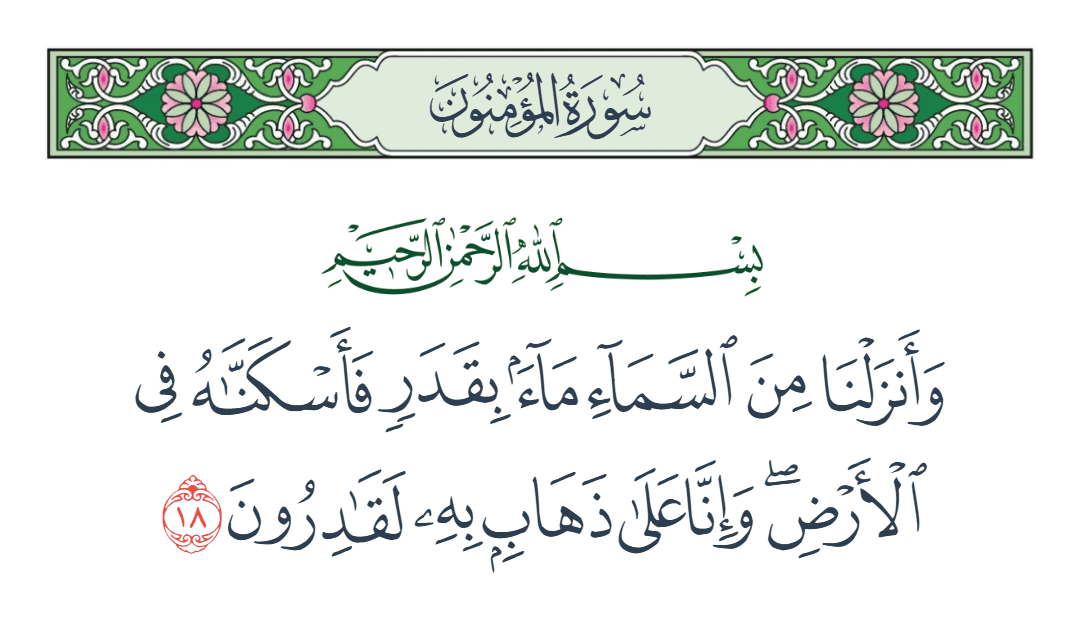 سُورَةُ الْمُؤْمِنُونَ
بِسْمِ ٱللَّهِ ٱلرَّحْمَٰنِ ٱلرَّحِيمِ
وَأَنزَلْنَا مِنَ ٱلسَّمَآءِ مَآءَۢ بِقَدَرٍ فَأَسْكَنَّٰهُ فِى
ٱلْأَرْضِ ۖ وَإِنَّا عَلَىٰ ذَهَابٍۭ بِهِۦ لَقَٰدِرُونَ ١٨